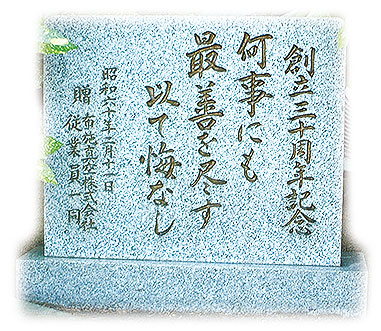 創立三十周年記念
何事にも
最善を尽す
以て悔なし
昭和六十年二月十一日
布施真空株式会社
贈 従業員一同